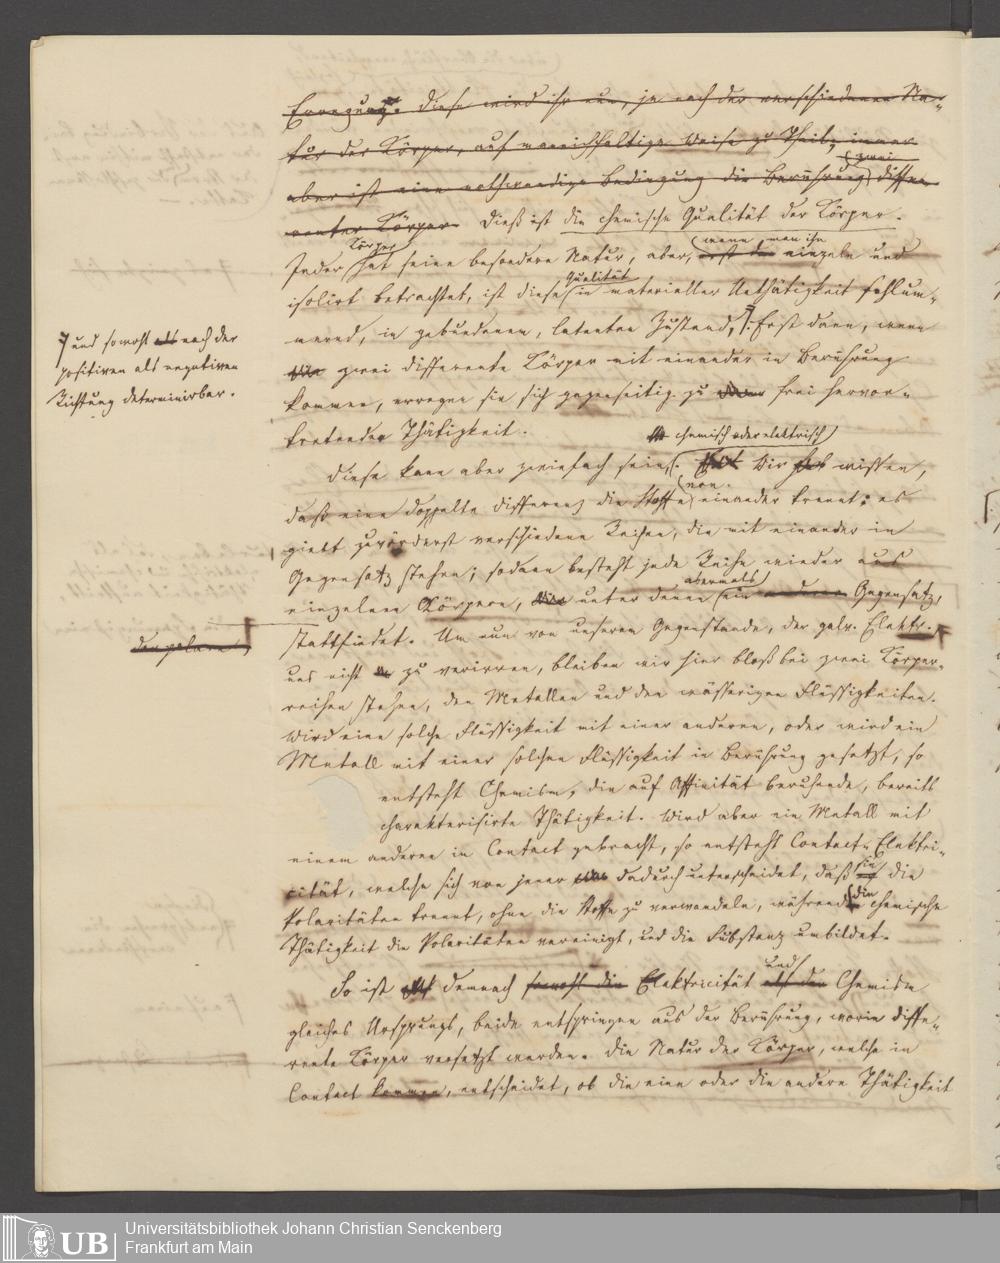 Erregung. Diese wird ihr nun, je nach der verschiedenen Na-
tur der Körper, auf mannichfaltige Weise zu Theil; immer
zwei
aber ist eine nothwendige Bedingung die Berührung differ-
renter Körper. Dieß ist die chemische Qualität der Körper.
Körper wenn man ihn
Jeder hat seine besondere Natur, aber, erst die einzeln und
Qualität
isolirt betrachtet, ist diese in materieller Unthätigkeit schlum-
mernd, in gebundenem, latenten Zustand, . Erst dann, wenn
7 und sowohl als nach der
positiven als negativen
Richtung determinirbar.
zwei differente Körper mit einander in Berührung
kommen, erregen sie sich gegenseitig zu frei hervor-
tretender Thätigkeit.
chemisch oder elektrisch
Diese kann aber zwiefach sein, . Wir wissen,
von
daß eine doppelte Differenz die Stoffe einander trennt: es
giebt zuvörderst verschiedene Reihen, die mit einander in
Gegensatz stehen; sodann besteht jede Reihe wieder aus
abermals
einzelnen Körpern, unter denen ein anderer Gegensatz,
stattfindet. Um nun von unserem Gegenstande, der galv. Elektr.
der polare
uns nicht zu verirren, bleiben wir hier bloß bei zwei Körper-
reihen stehen, den Metallen und den wässerigen Flüssigkeiten.
Wird eine solche Flüssigkeit mit einer anderen, oder wird ein
Metall mit einer solchen Flüssigkeit in Berührung gesetzt, so
entsteht Chemism, die auf Affinität beruhende, bereits
charakterisirte Thätigkeit. Wird aber ein Metall mit
einem anderen in Contact gebracht, so entsteht Contact-Elektri-
sie
cität, welche sich von jener dadurch unterscheidet, daß die
die
Polaritäten trennt, ohne die Stoffe zu verwandeln, während chemische
Thätigkeit die Polaritäten vereinigt, und die Substanz umbildet.
und
So ist demnach sowohl die Elektricität als der Chemism
gleiches Ursprungs, beide entspringen aus der Berührung, worin diffe-
rente Körper versetzt werden. Die Natur der Körper, welche in
Contact kommen, entscheidet, ob die eine oder die andere Thätigkeit
UB
Universitätsbibliothek Johann Christian Senckenberg
Frankfurt am Main